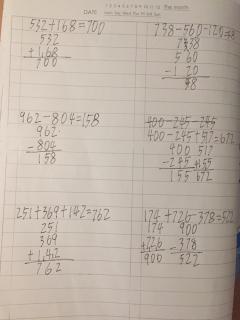 DATE
532+168=700
532
+168
700
738-560-120=58
738
560
-120
58
962-804=158
962
-804
158
400-245-245
400-245+517=672
400 517
-245 +155
155 672
251+369+142=762
251
369
+142
762
174+726-378=522
174 900
+726 -378
900 522